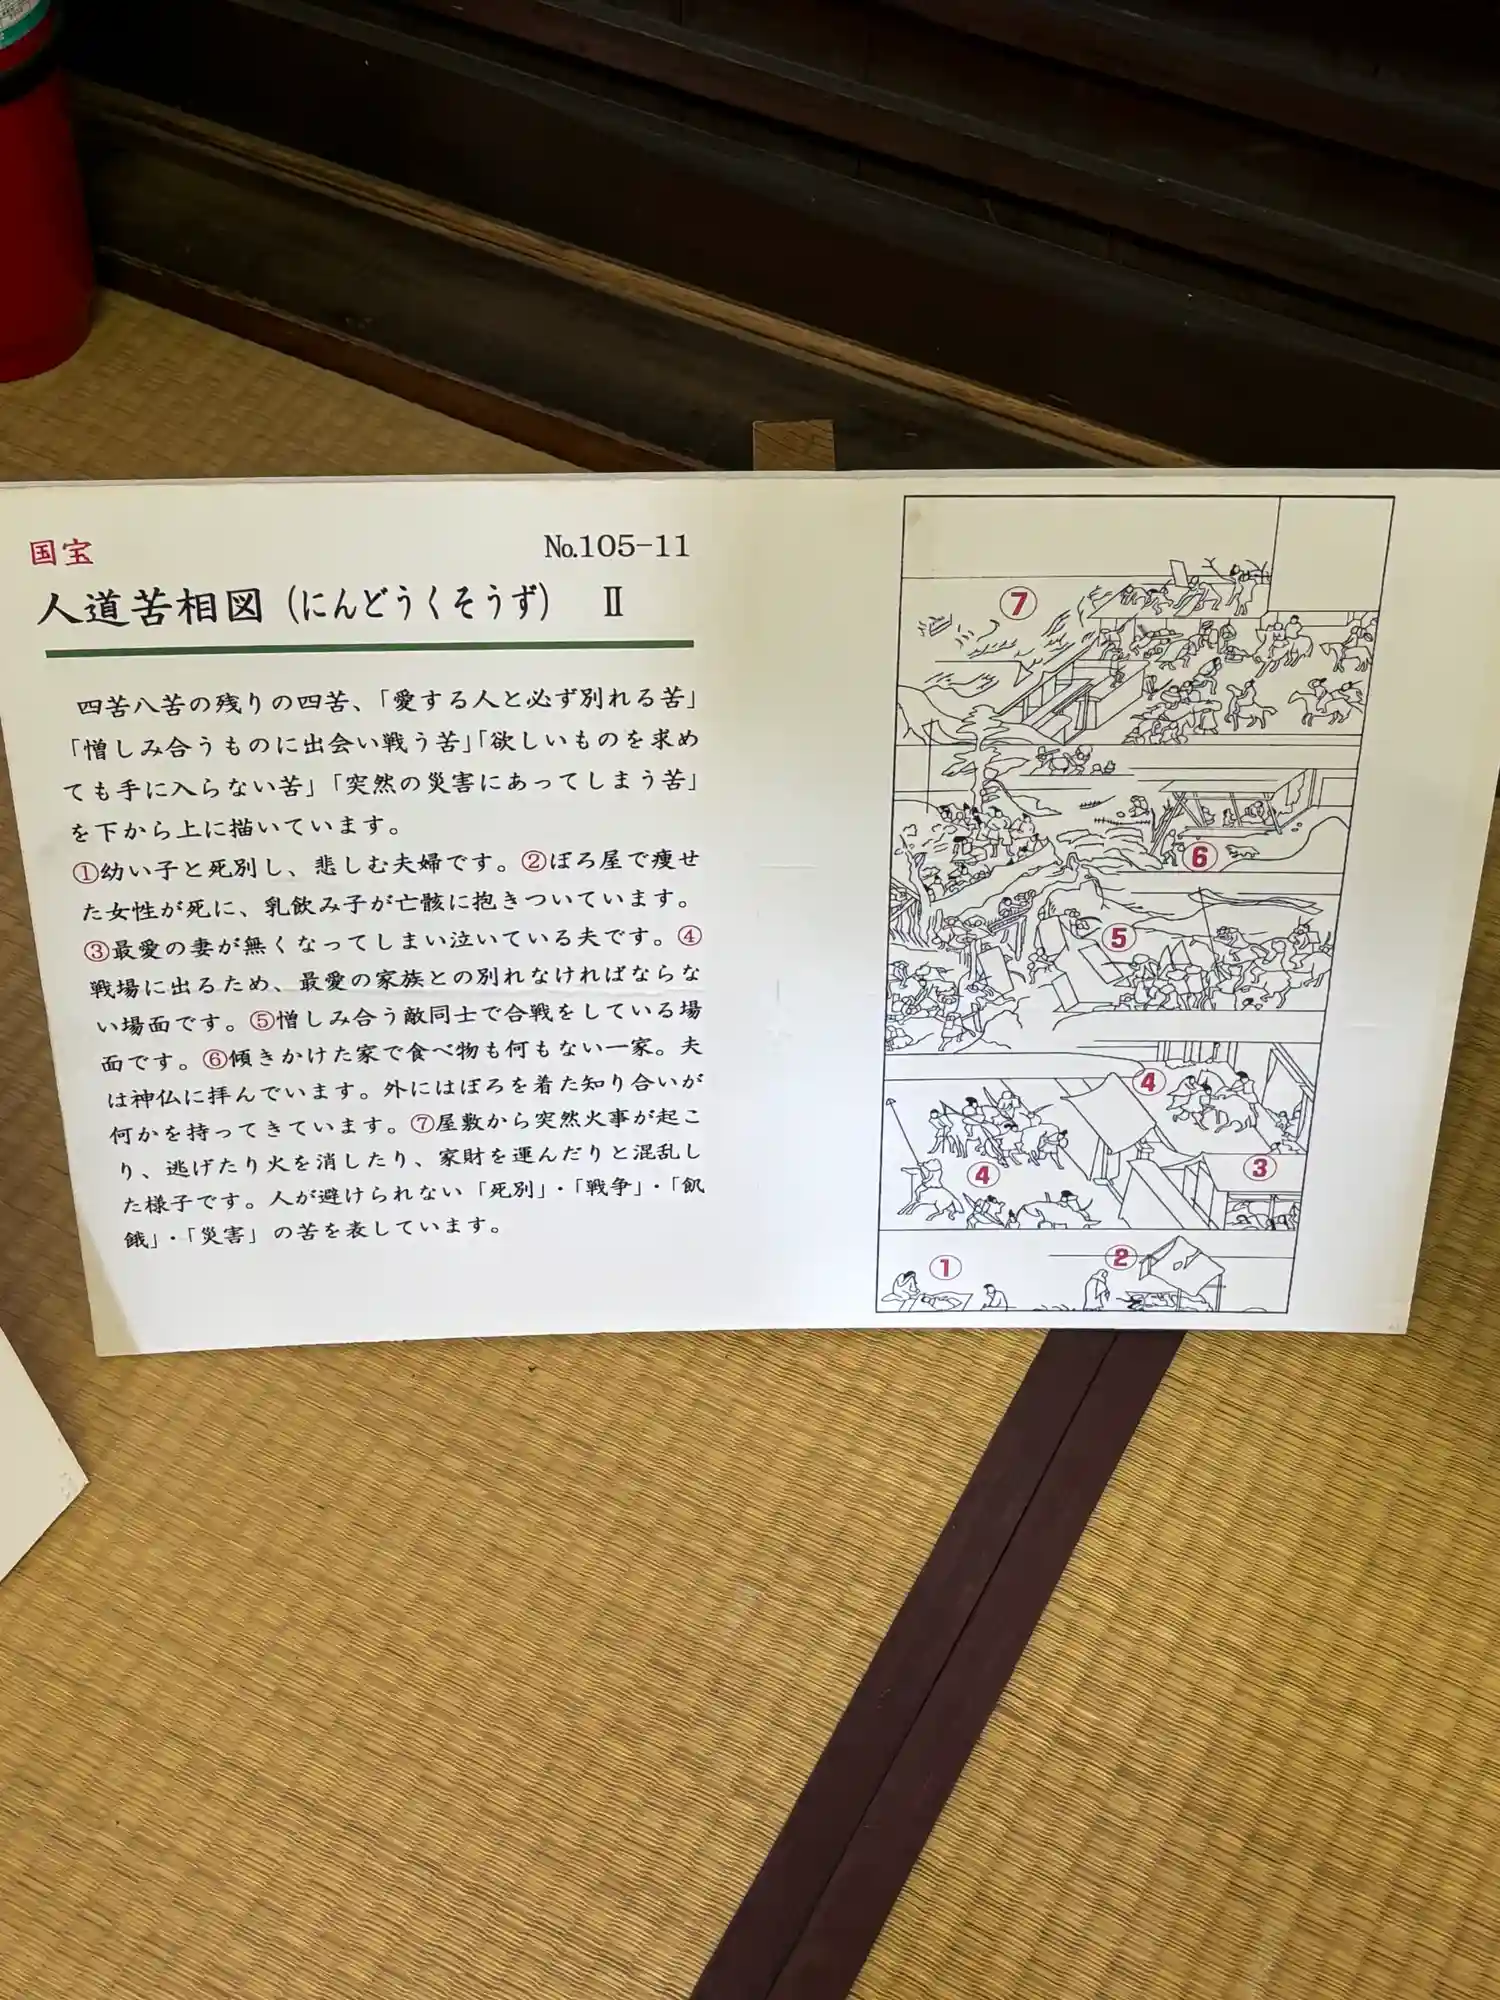 国宝
No.105-11
人道苦相図（にんどうくそうず） Ⅱ
四苦八苦の残りの四苦、「愛する人と必ず別れる苦」
「憎しみ合うものに出会い戦う苦」「欲しいものを求め
ても手に入らない苦」「突然の災害にあってしまう苦」
を下から上に描いています。
①幼い子と死別し、悲しむ夫婦です。②ぼろ屋で痩せ
た女性が死に、乳飲み子が亡骸に抱きついています。
③最愛の妻が無くなってしまい泣いている夫です。④
戦場に出るため、最愛の家族との別れなければならな
い場面です。⑤憎しみ合う敵同士で合戦をしている場
面です。⑥傾きかけた家で食べ物も何もない一家。夫
は神仏に拝んでいます。外にはぼろを着た知り合いが
何かを持ってきています。⑦屋敷から突然火事が起こ
り、逃げたり火を消したり、家財を運んだりと混乱し
た様子です。人が避けられない「死別」・「戦争」・「飢
餓」・「災害」の苦を表しています。
⑦
⑥
⑤
④
④
③
①
②